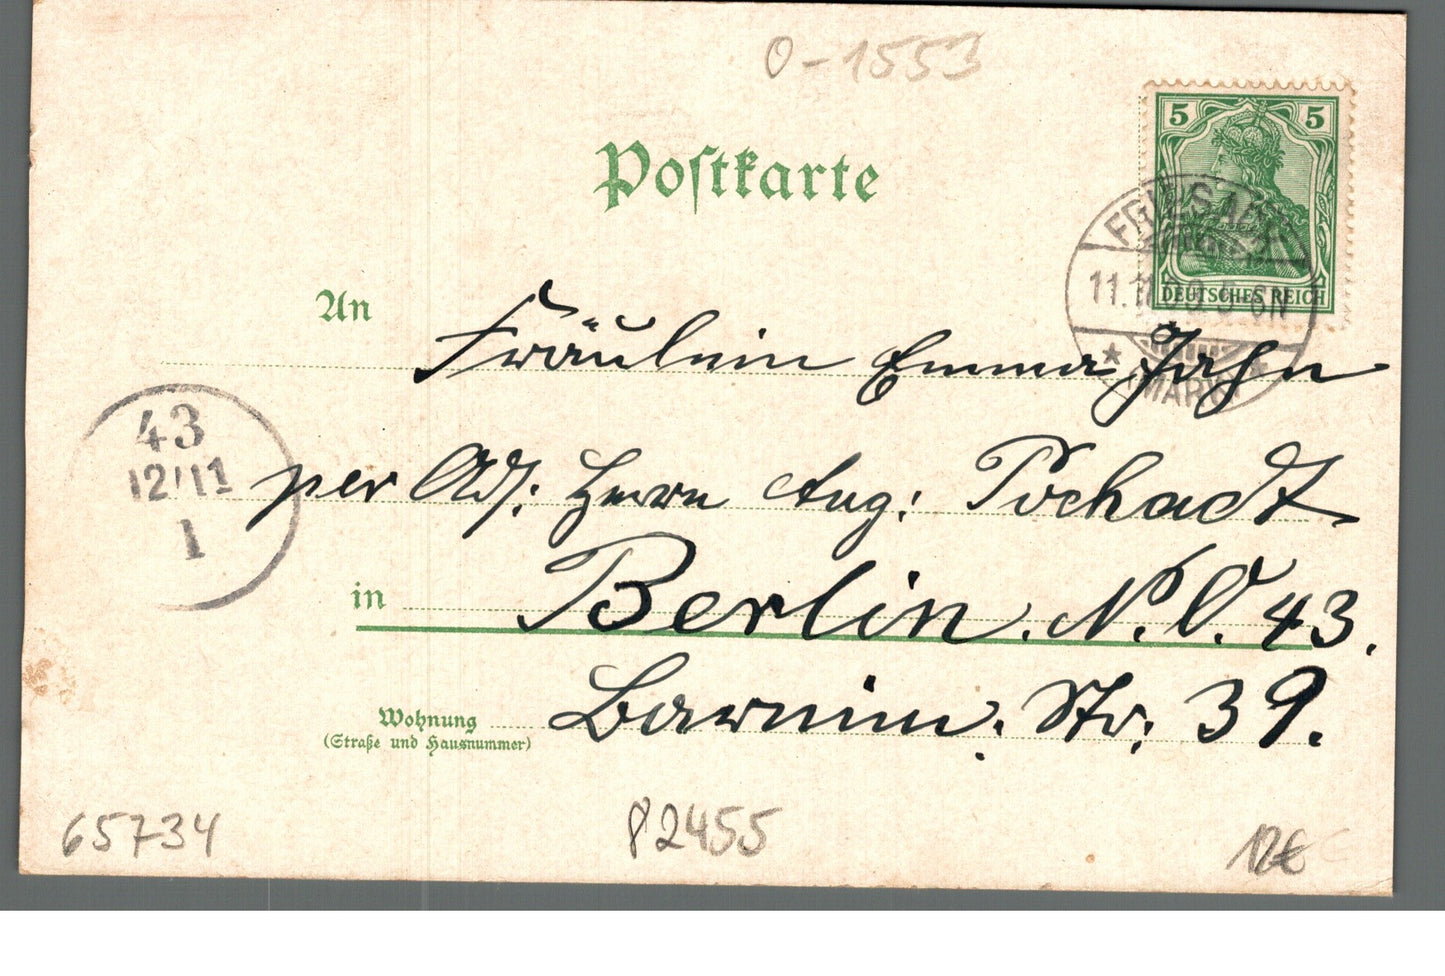 O-1553
Postkarte
5 5
DEUTSCHES REICH
FRIESACK
(MARK)
An Fräulein Emma Jahn
43
12/11
1
per Ad: Herrn Aug: Pochadt
in Berlin. N.O. 43.
Wohnung Barnim: Str: 39.
(Straße und Hausnummer)
65734
82455
12€